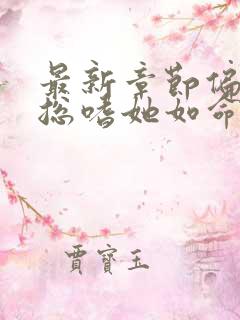 最新章節偏
總嗜她如命
賈寶玉